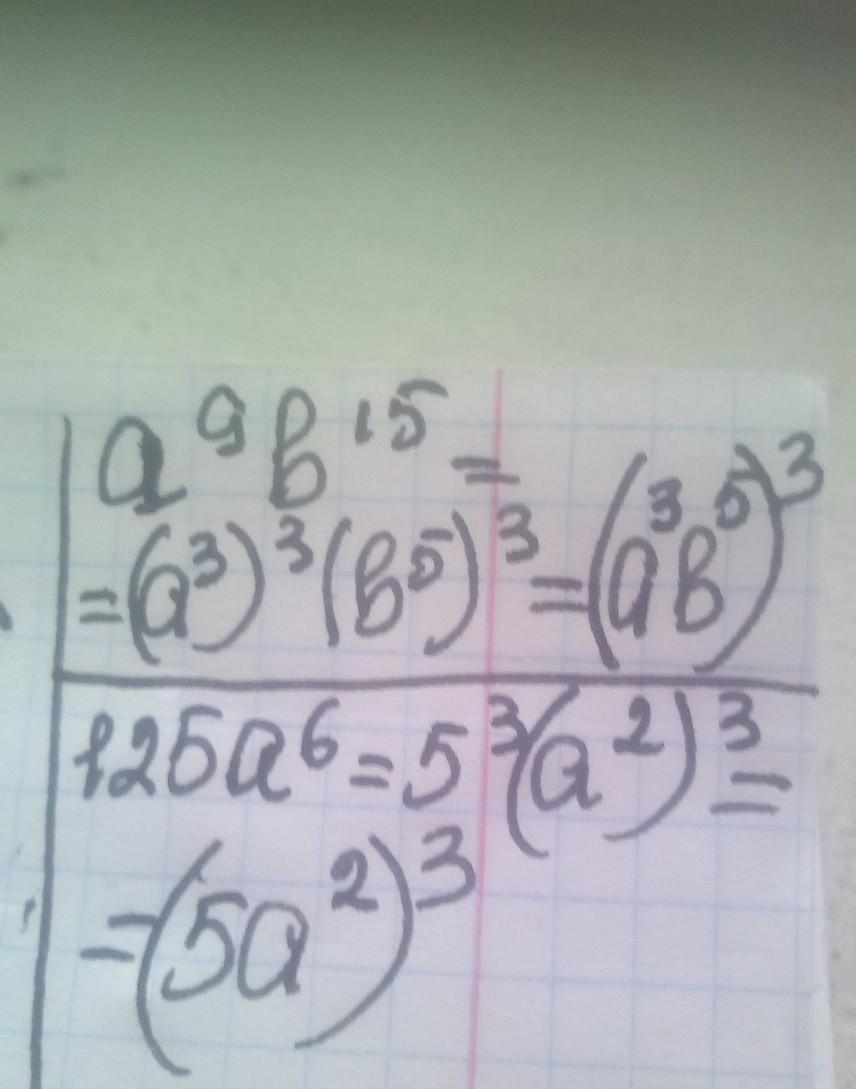 a⁹b¹⁵ =
= (a³)³(b⁵)³ = (a³b⁵)³
125a⁶ = 5³(a²)³ =
= (5a²)³